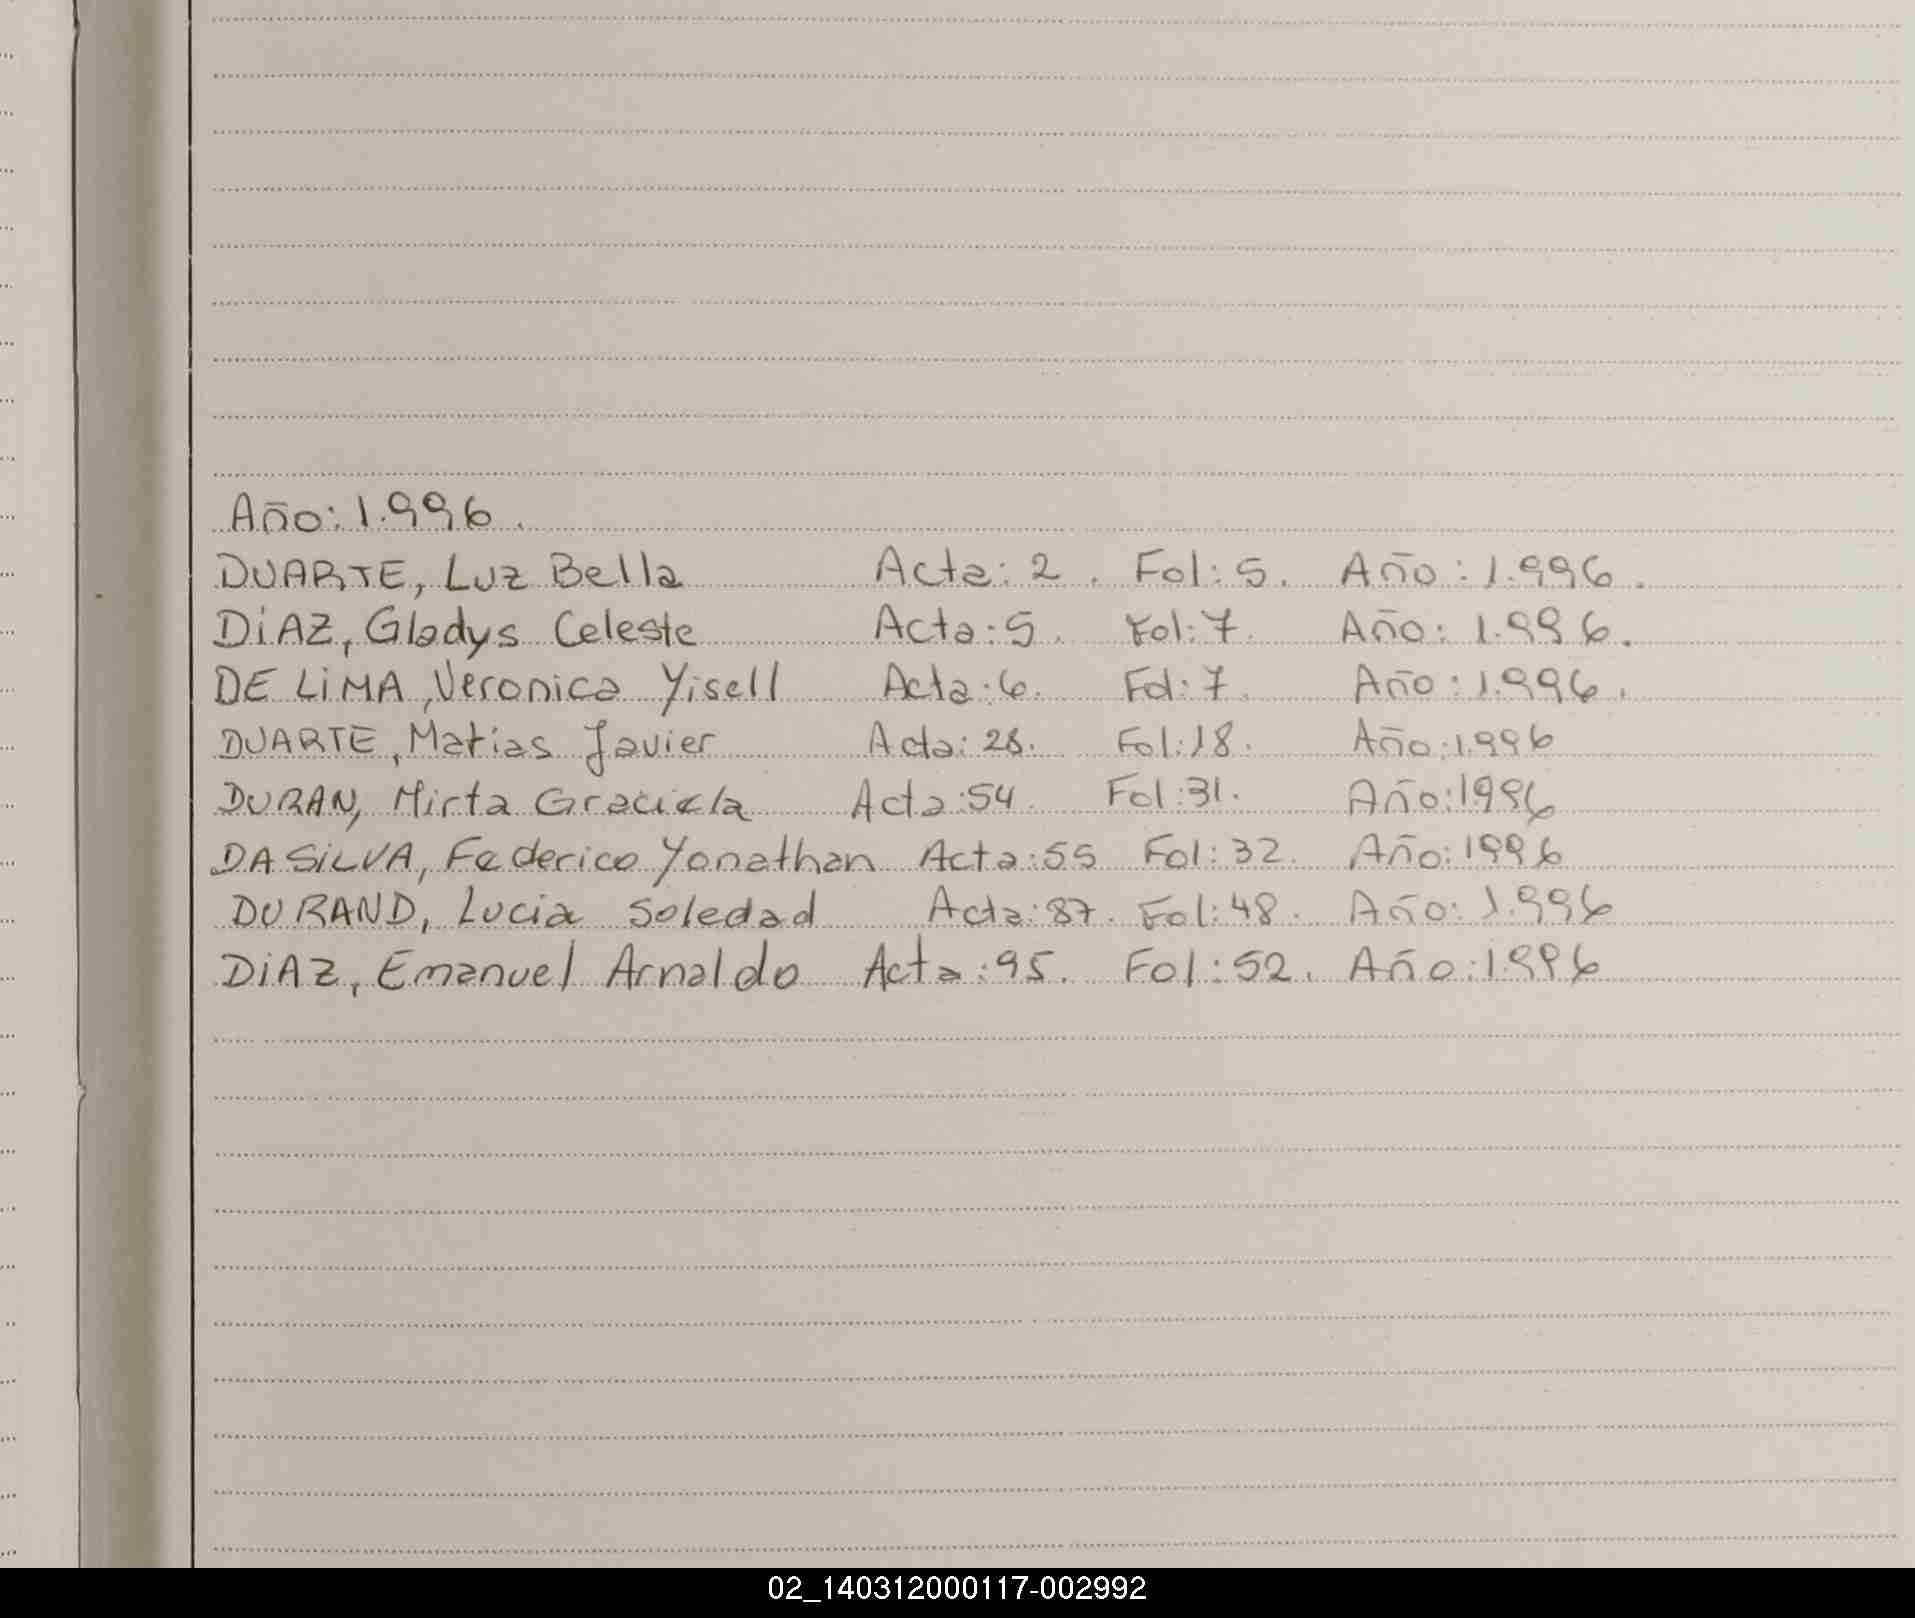 Año: 1.996.
DUARTE, Luz Bella Acta: 2. Fol: 5. Año: 1.996.
DiAZ, Gladys Celeste Acta: 5. Fol: 7. Año: 1.996.
DE LiMA, Veronica Yisell Acta: 6. Fol: 7. Año: 1.996.
DUARTE, Matias Javier Acta: 28. Fol: 18. Año: 1.996
DURAN, Mirta Graciela Acta: 54. Fol: 31. Año: 1996
DA SiLVA, Federico Yonathan Acta: 55 Fol: 32. Año: 1996
DURAND, Lucia Soledad Acta: 87. Fol: 48. Año: 1.996
DiAZ, Emanuel Arnaldo Acta: 95. Fol: 52. Año: 1.996
02_140312000117-002992